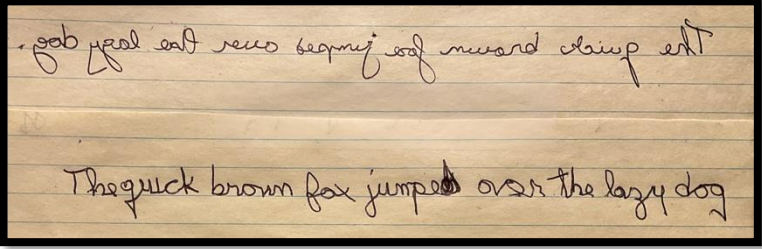 The quick brown fox jumped over the lazy dog.
The quick brown fox jumped over the lazy dog